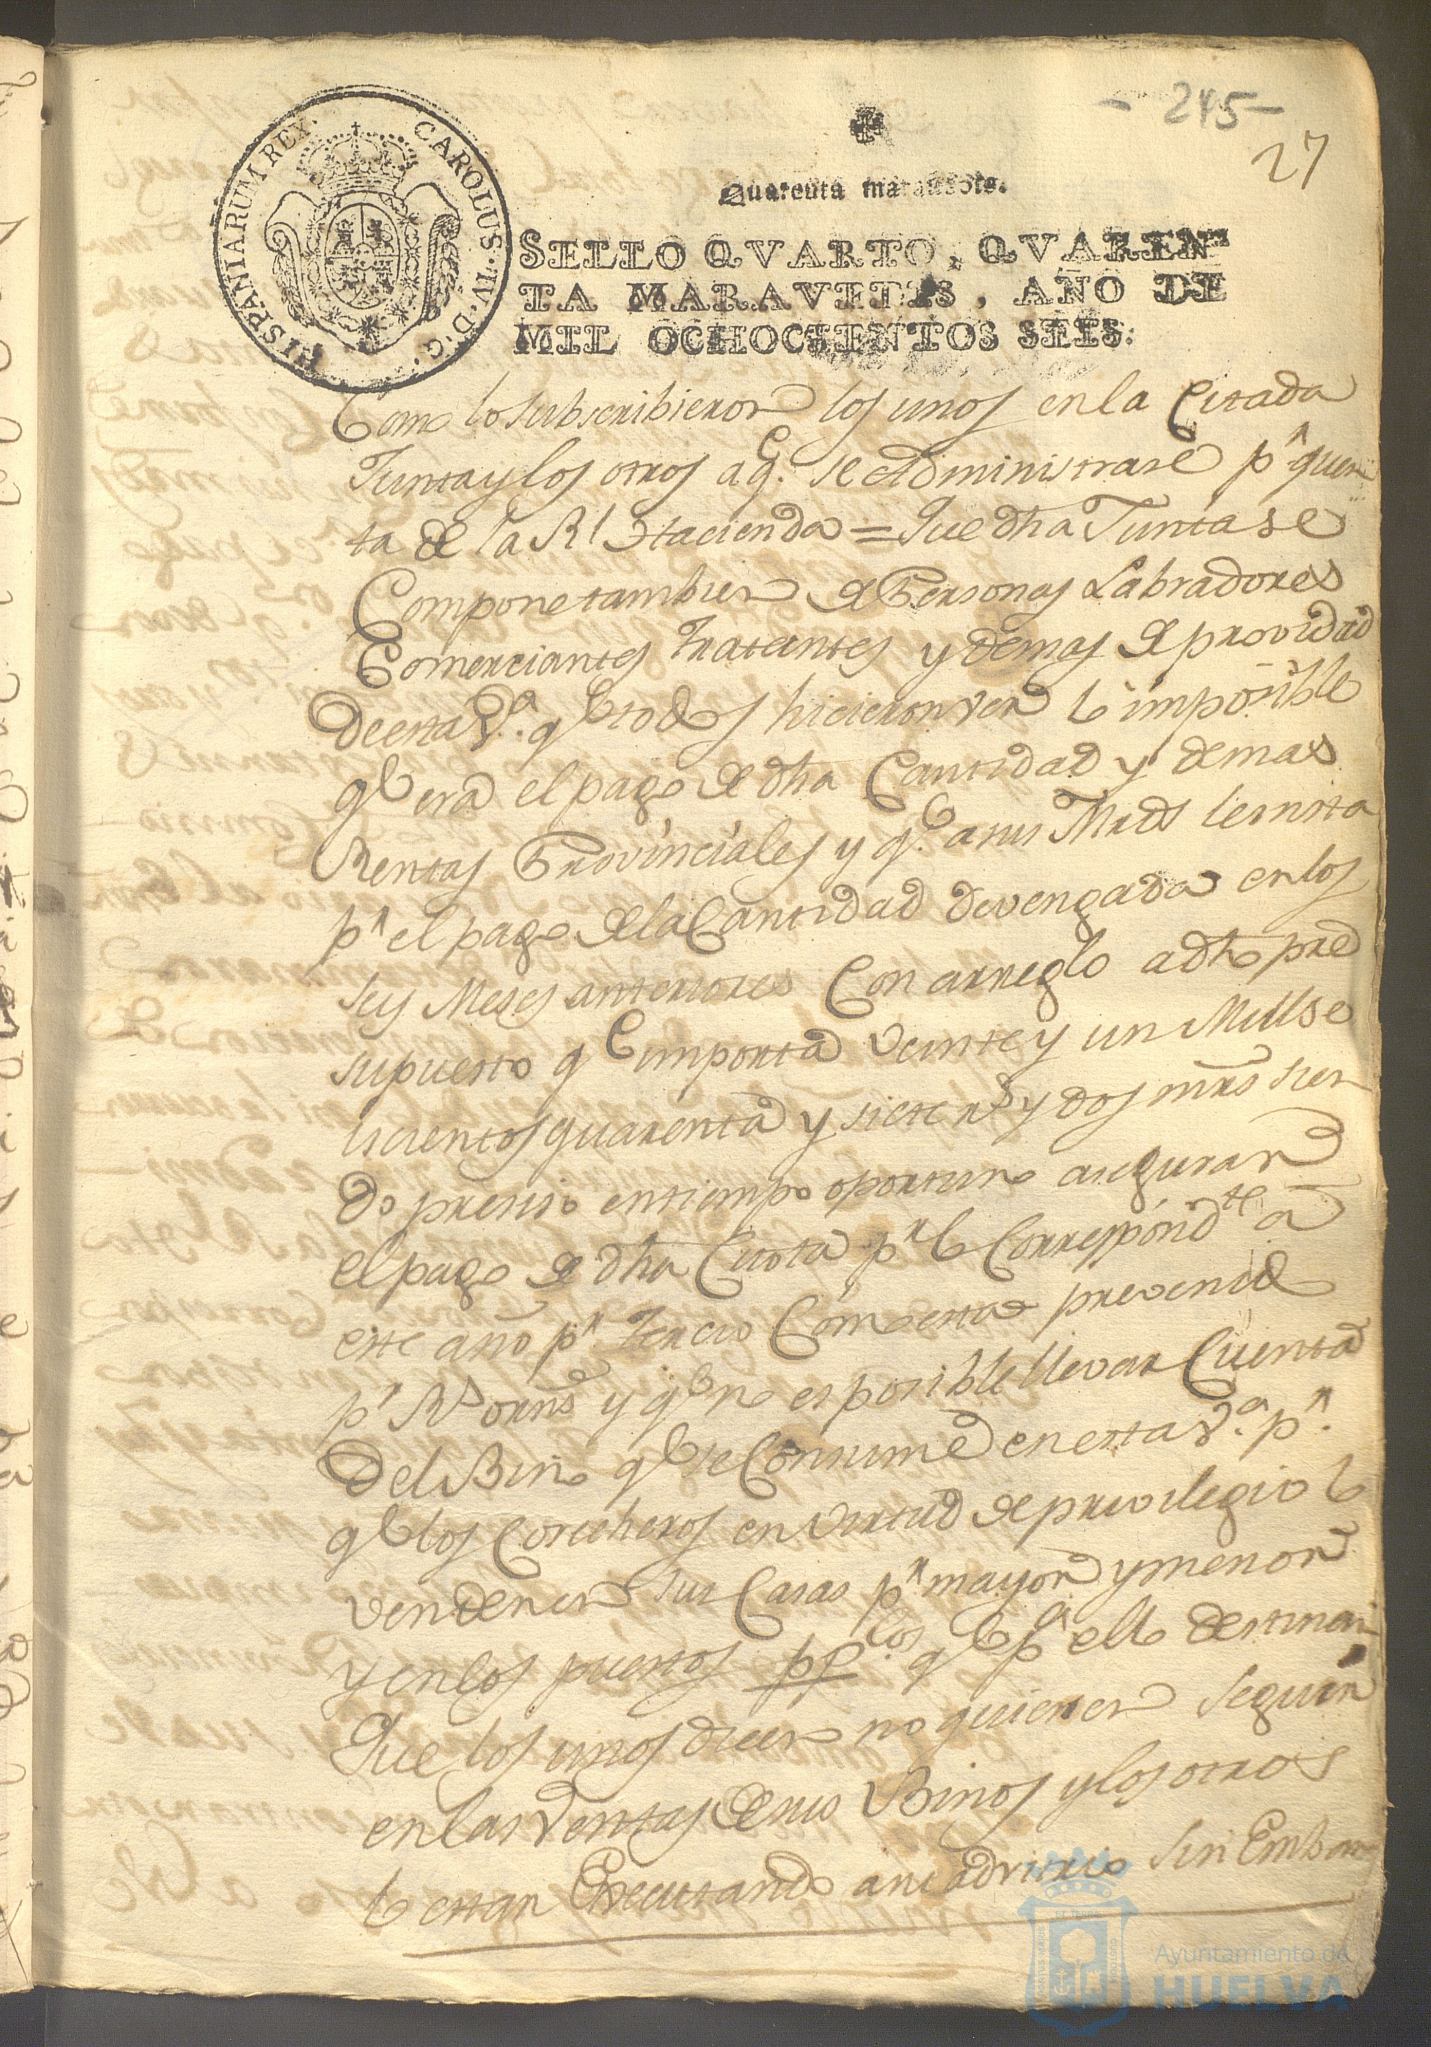 - 245 -
27
HISPANIARUM REX. CAROLUS. IV. D. G.
Quarenta marauedis.
SELLO QVARTO, QVAREN-
TA MARAVEDIS, AÑO DE
MIL OCHOCIENTOS SEIS:
Como lo subscribieron los unos en la Citada
Junta y los otros a q.e se Administrase p.r quen
ta de la R.l Hacienda = Que dha Junta se
Compone tambien de Personas Labradores
Comerciantes Tratantes y demas de providad
De esta V.a q.e todos hicieron ver lo imposible
q.e era el pago de dha Cantidad y demas
Rentas Provinciales y q.e a sus Mrds le insta
p.a el pago de la Cantidad devengada en los
seis Meses anteriores Con arreglo a dho pre
supuesto q.e importa Veinte y un Mill se
iscientos quarenta y siete r.s y dos mrs sien
do presiso en tiempo oportuno asegurar
el pago de dha Cuota p.r lo Correspond.te a
este año p.r Tercio Como esta prevenido
p.r R.s orns y q.e no es posible llevar Cuenta
Del Bino q.e se Consume en esta V.a p.r
q.e los Cosecheros en Virtud de previlegio lo
venden en sus Casas p.r mayor y menor
y en los puestos pp.cos q.e p.a ello destinan
Que los unos dicen no quieren seguir
en las Ventas de sus Binos y los otros
lo estan Executando a su advitrio sin Embar
Ayuntamiento de
HUELVA